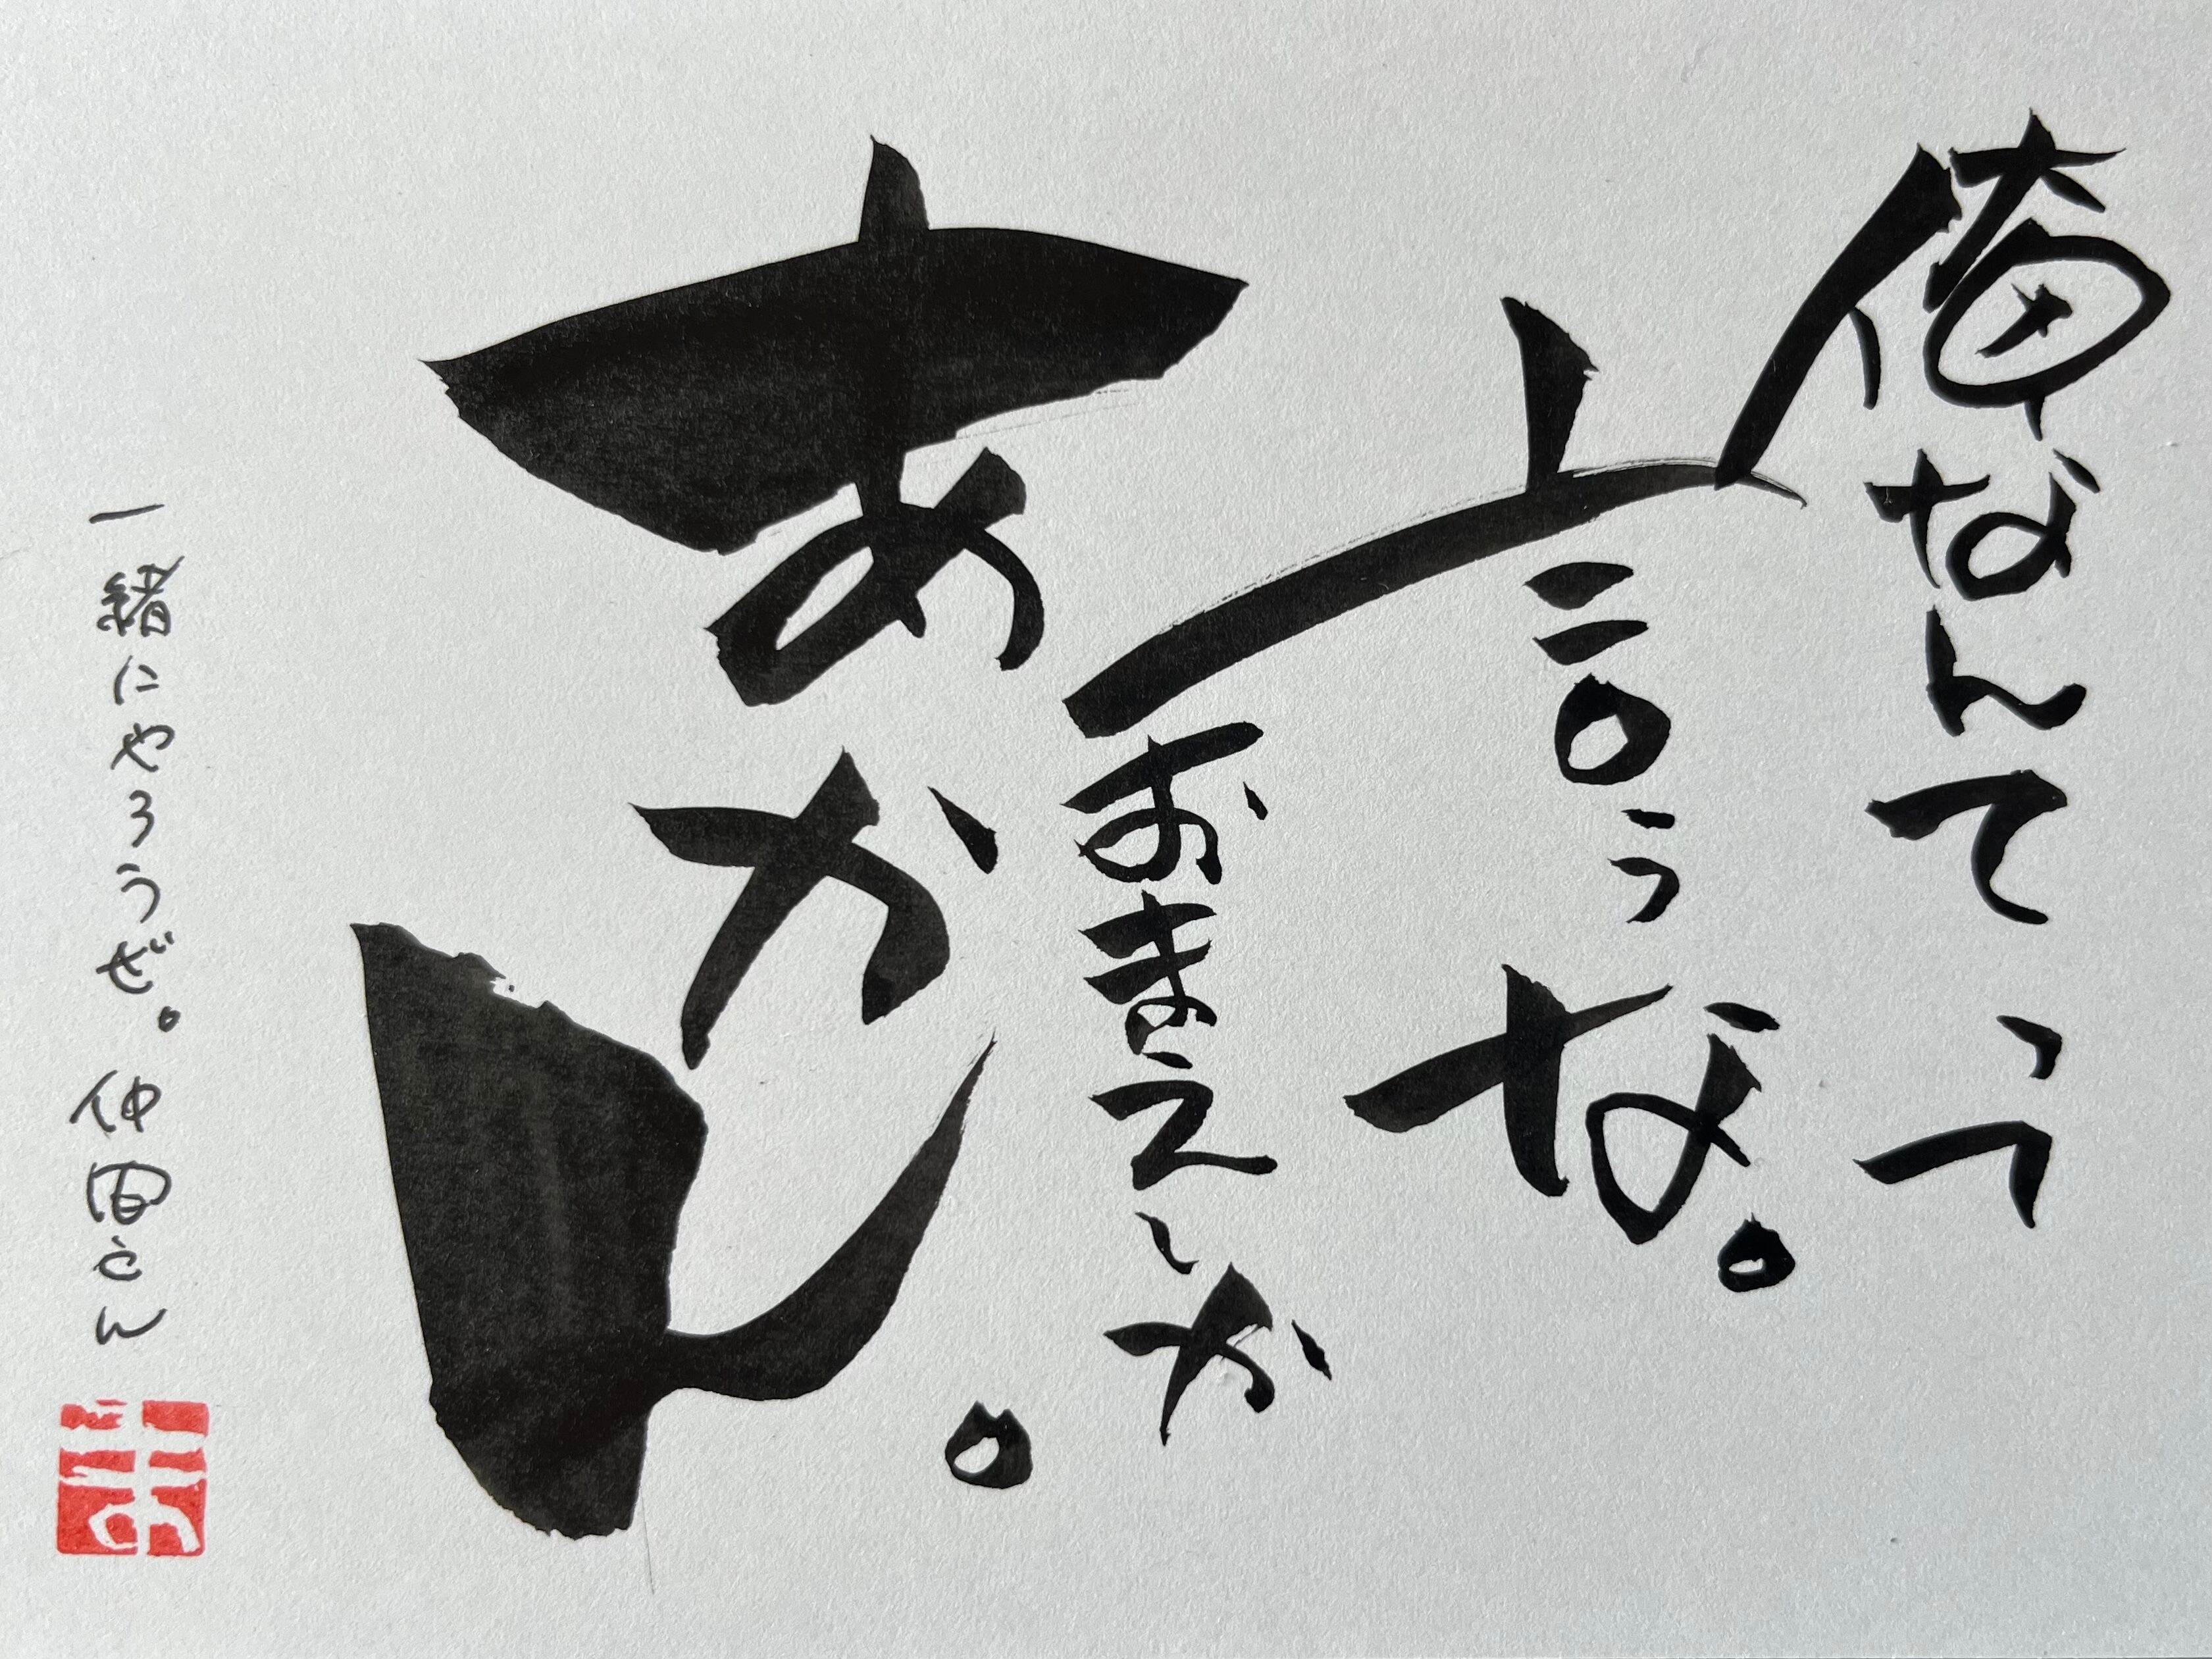 俺なんてっつ
言うな。
おまえしか
あかん。
一緒にやろうぜ。 仲間さん